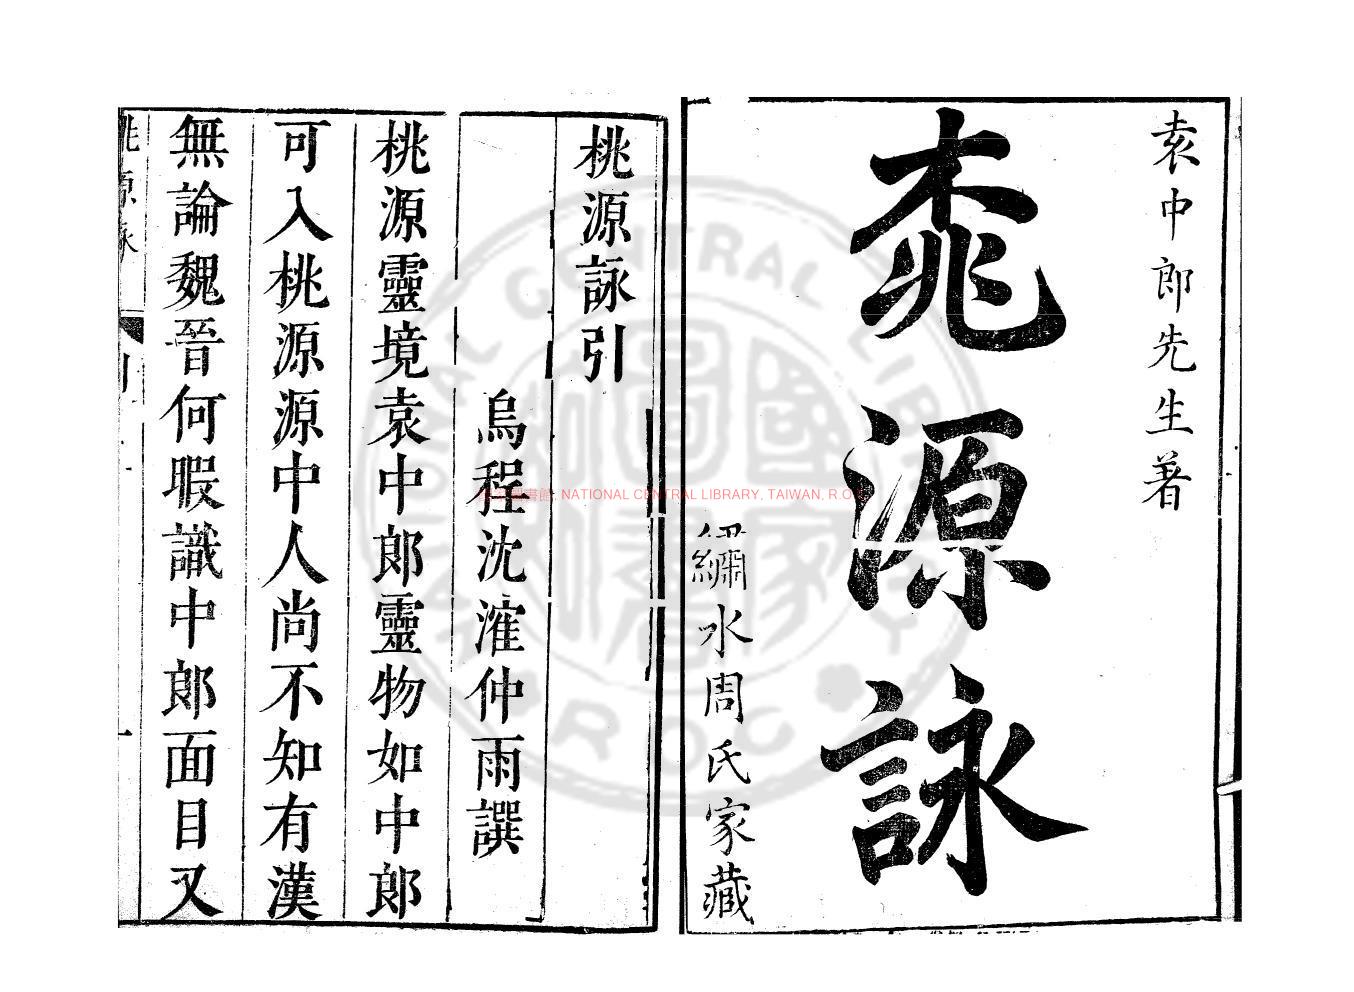 袁中郎先生著
桃源詠
繡水周氏家藏
桃源詠引
烏程沈㴶仲雨譔
桃源靈境袁中郎靈物如中郎
可入桃源源中人尚不知有漢
無論魏晉何暇識中郎面目又
桃源詠
NATIONAL CENTRAL LIBRARY, TAIWAN, R.O.C
NATIONAL CENTRAL LIBRARY
R.O.C